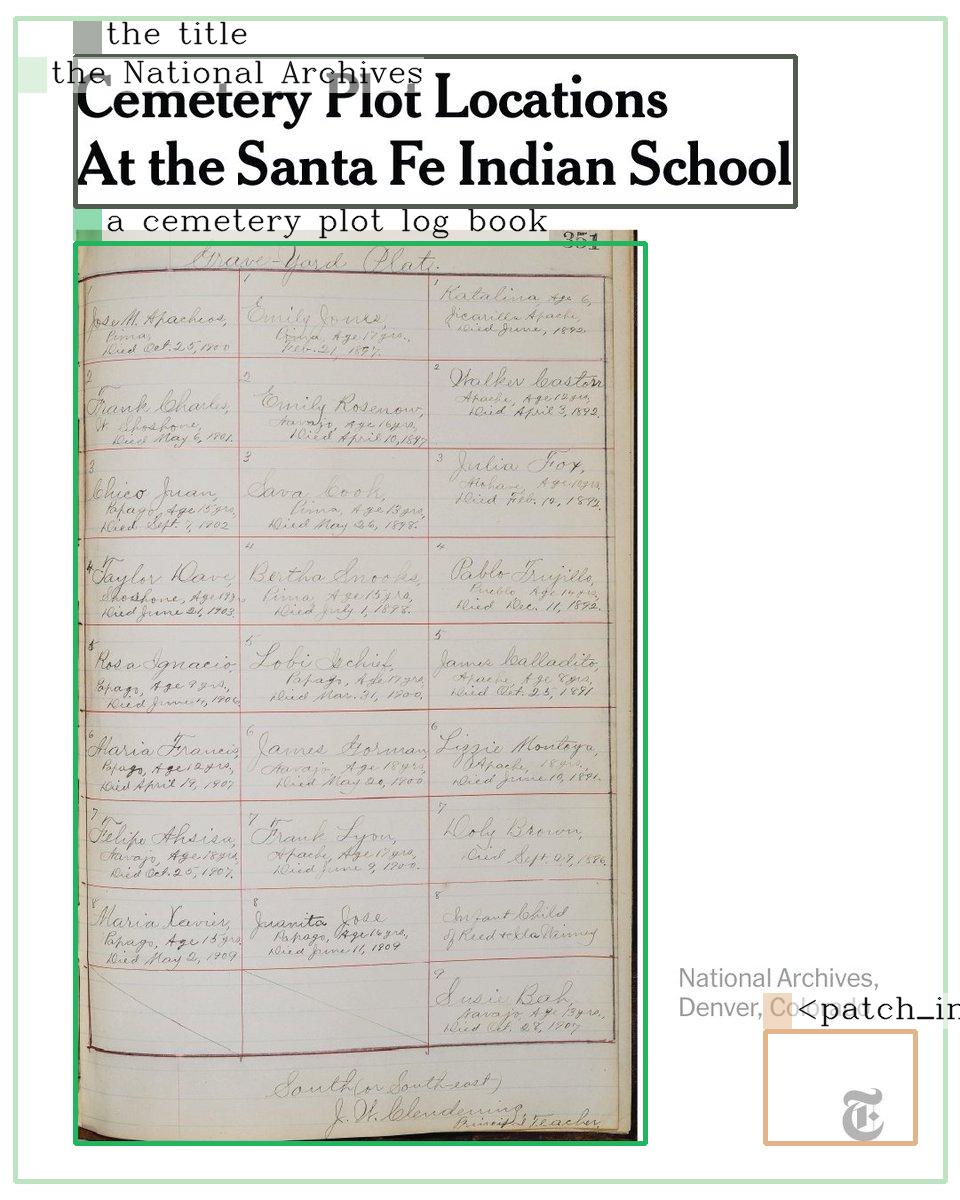 the title
the National Archives
Cemetery Plot Locations
At the Santa Fe Indian School
a cemetery plot log book
351
Grave-Yard Plat.
1
Jose M. Apacheos,
Pima,
Died Oct. 25, 1900
1
Emily Jones,
Pima, Age 17 yrs.,
Feb. 21, 1897.
1
Katalina, Age 6,
Jicarilla Apache,
Died June, 1892.
2
Frank Charles,
W. Shoshone,
Died May 6, 1901.
2
Emily Rosenow,
Navajo, Age 16 yrs,
Died April 10, 1897
2
Walker Castorr
Apache, Age 12 yrs,
Died April 3, 1892.
3
Chico Juan,
Papago, Age 15 yrs,
Died Sept. 7, 1902
3
Sava Cook,
Pima, Age 13 yrs,
Died May 26, 1898.
3
Julia Fox,
Age
Died Feb. 1892.
4
Taylor Dave,
Shoshone, Age 19 yrs
Died June 21, 1903.
4
Bertha Snooks,
Pima, Age 15 yrs,
Died July 1, 1898.
4
Pablo Trujillo,
Pueblo, Age 14 yrs,
Died Dec. 11, 1892.
5
Rosa Ignacio,
Papago, Age 9 yrs.,
Died June 1906
5
Lobi Schief,
Papago, Age 17 yrs,
Died Mar. 31, 1900,
5
James Calladito,
Apache, Age 8 yrs,
Died Oct. 25, 1891
6
Maria Francis
Papago, Age 12 yrs,
Died April 19, 1907
6
James Gorman
Navajo, Age 18 yrs,
Died May 20, 1900
6
Lizzie Montoya,
Apache, 18 yrs.,
Died June 10, 1891.
7
Felipe Ahsisa,
Navajo, Age 18 yrs,
Died Oct. 25, 1907.
7
Frank Lyon,
Apache, Age 17 yrs,
Died June 9, 1900.
7
Doly Brown,
Died Sept. 29, 1896.
8
Maria Xavier,
Papago, Age 15 yrs.
Died May 2, 1909
8
Juanita Jose
Papago, Age 14 yrs,
Died June 11, 1909
8
Infant Child
of Reed & Ida Winney
9
Susie Bah,
Navajo, Age 13 yrs.,
Died Oct. 28, 1907
South (or South-east)
J. W. Clendening
Princip'l Teacher.
National Archives,
Denver, Colorado
<patch_in